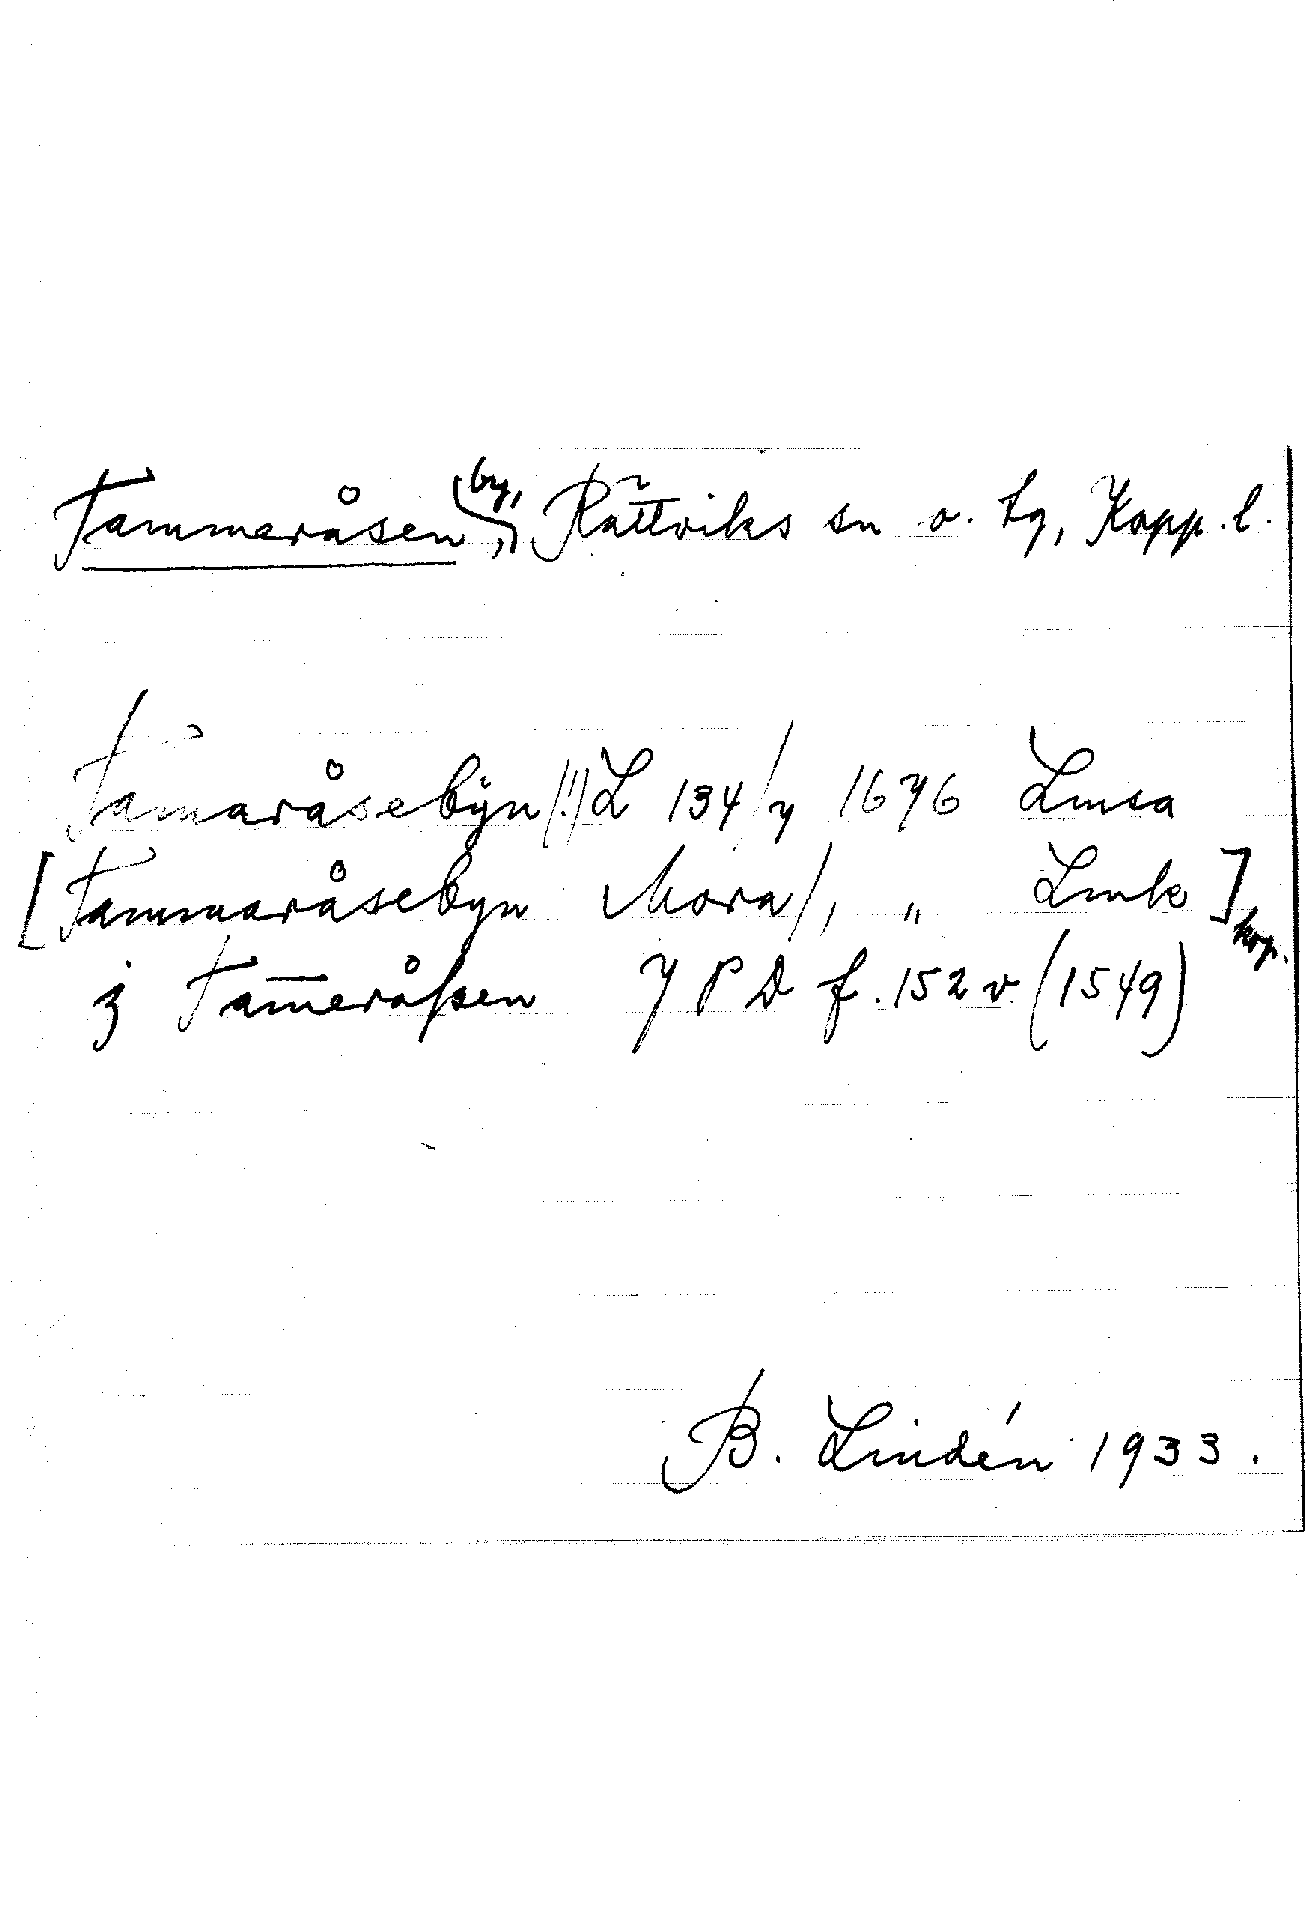 Tammeråsen by, Rättviks sn o. tg, Kopp. l.
Tam̄aråsebÿn (!) L 134/7 1676 Lmsa
[Tammaråsebyn Mora), „ Lmk] kop.
j Tam̄eråssen 7 P D f. 152 v (1549)
B. Lindén 1933.